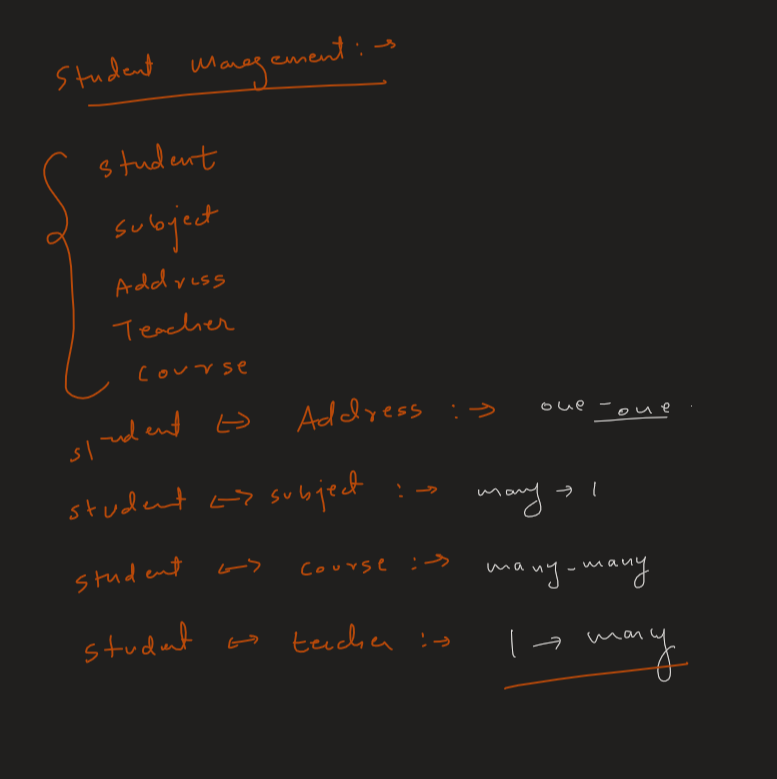 Student Management :→
student
subject
Address
Teacher
course
student ↔ Address :→ one - one
student ↔ subject :→ many → 1
student ↔ course :→ many - many
student ↔ teacher :→ 1 → many